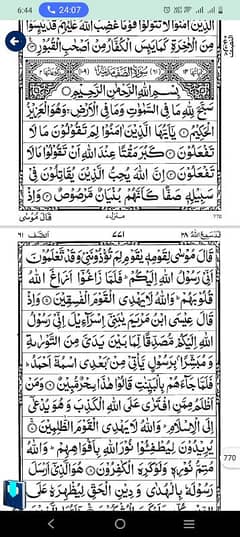 6:44 24:07
الَّذِيْنَ اٰمَنُوْا لَا تَتَوَلَّوْا قَوْمًا غَضِبَ اللّٰهُ عَلَيْهِمْ قَدْ يَئِسُوْا
مِنَ الْاٰخِرَةِ كَمَا يَئِسَ الْكُفَّارُ مِنْ اَصْحٰبِ الْقُبُوْرِ
بِسْمِ اللّٰهِ الرَّحْمٰنِ الرَّحِيْمِ
سَبَّحَ لِلّٰهِ مَا فِي السَّمٰوٰتِ وَمَا فِي الْاَرْضِ وَهُوَ الْعَزِيْزُ
الْحَكِيْمُ يٰٓاَيُّهَا الَّذِيْنَ اٰمَنُوْا لِمَ تَقُوْلُوْنَ مَا لَا
تَفْعَلُوْنَ كَبُرَ مَقْتًا عِنْدَ اللّٰهِ اَنْ تَقُوْلُوْا مَا لَا
تَفْعَلُوْنَ اِنَّ اللّٰهَ يُحِبُّ الَّذِيْنَ يُقَاتِلُوْنَ فِيْ
سَبِيْلِهٖ صَفًّا كَاَنَّهُمْ بُنْيَانٌ مَّرْصُوْصٌ وَاِذْ
قَالَ مُوْسٰى
الصف ٦١ ٧٧١ قد سمع الله ٢٨
قَالَ مُوْسٰى لِقَوْمِهٖ يٰقَوْمِ لِمَ تُؤْذُوْنَنِيْ وَقَدْ تَّعْلَمُوْنَ
اَنِّيْ رَسُوْلُ اللّٰهِ اِلَيْكُمْ فَلَمَّا زَاغُوْٓا اَزَاغَ اللّٰهُ
قُلُوْبَهُمْ وَاللّٰهُ لَا يَهْدِي الْقَوْمَ الْفٰسِقِيْنَ وَاِذْ
قَالَ عِيْسَى ابْنُ مَرْيَمَ يٰبَنِيْٓ اِسْرَآءِيْلَ اِنِّيْ رَسُوْلُ
اللّٰهِ اِلَيْكُمْ مُّصَدِّقًا لِّمَا بَيْنَ يَدَيَّ مِنَ التَّوْرٰىةِ
وَمُبَشِّرًا بِرَسُوْلٍ يَّاْتِيْ مِنْ بَعْدِي اسْمُهٗٓ اَحْمَدُ
فَلَمَّا جَآءَهُمْ بِالْبَيِّنٰتِ قَالُوْا هٰذَا سِحْرٌ مُّبِيْنٌ وَمَنْ
اَظْلَمُ مِمَّنِ افْتَرٰى عَلَى اللّٰهِ الْكَذِبَ وَهُوَ يُدْعٰٓى
اِلَى الْاِسْلَامِ وَاللّٰهُ لَا يَهْدِي الْقَوْمَ الظّٰلِمِيْنَ
يُرِيْدُوْنَ لِيُطْفِئُوْا نُوْرَ اللّٰهِ بِاَفْوَاهِهِمْ وَاللّٰهُ
مُتِمُّ نُوْرِهٖ وَلَوْ كَرِهَ الْكٰفِرُوْنَ هُوَ الَّذِيْٓ اَرْسَلَ
770
رَسُوْلَهٗ بِالْهُدٰى وَدِيْنِ الْحَقِّ لِيُظْهِرَهٗ عَلَى